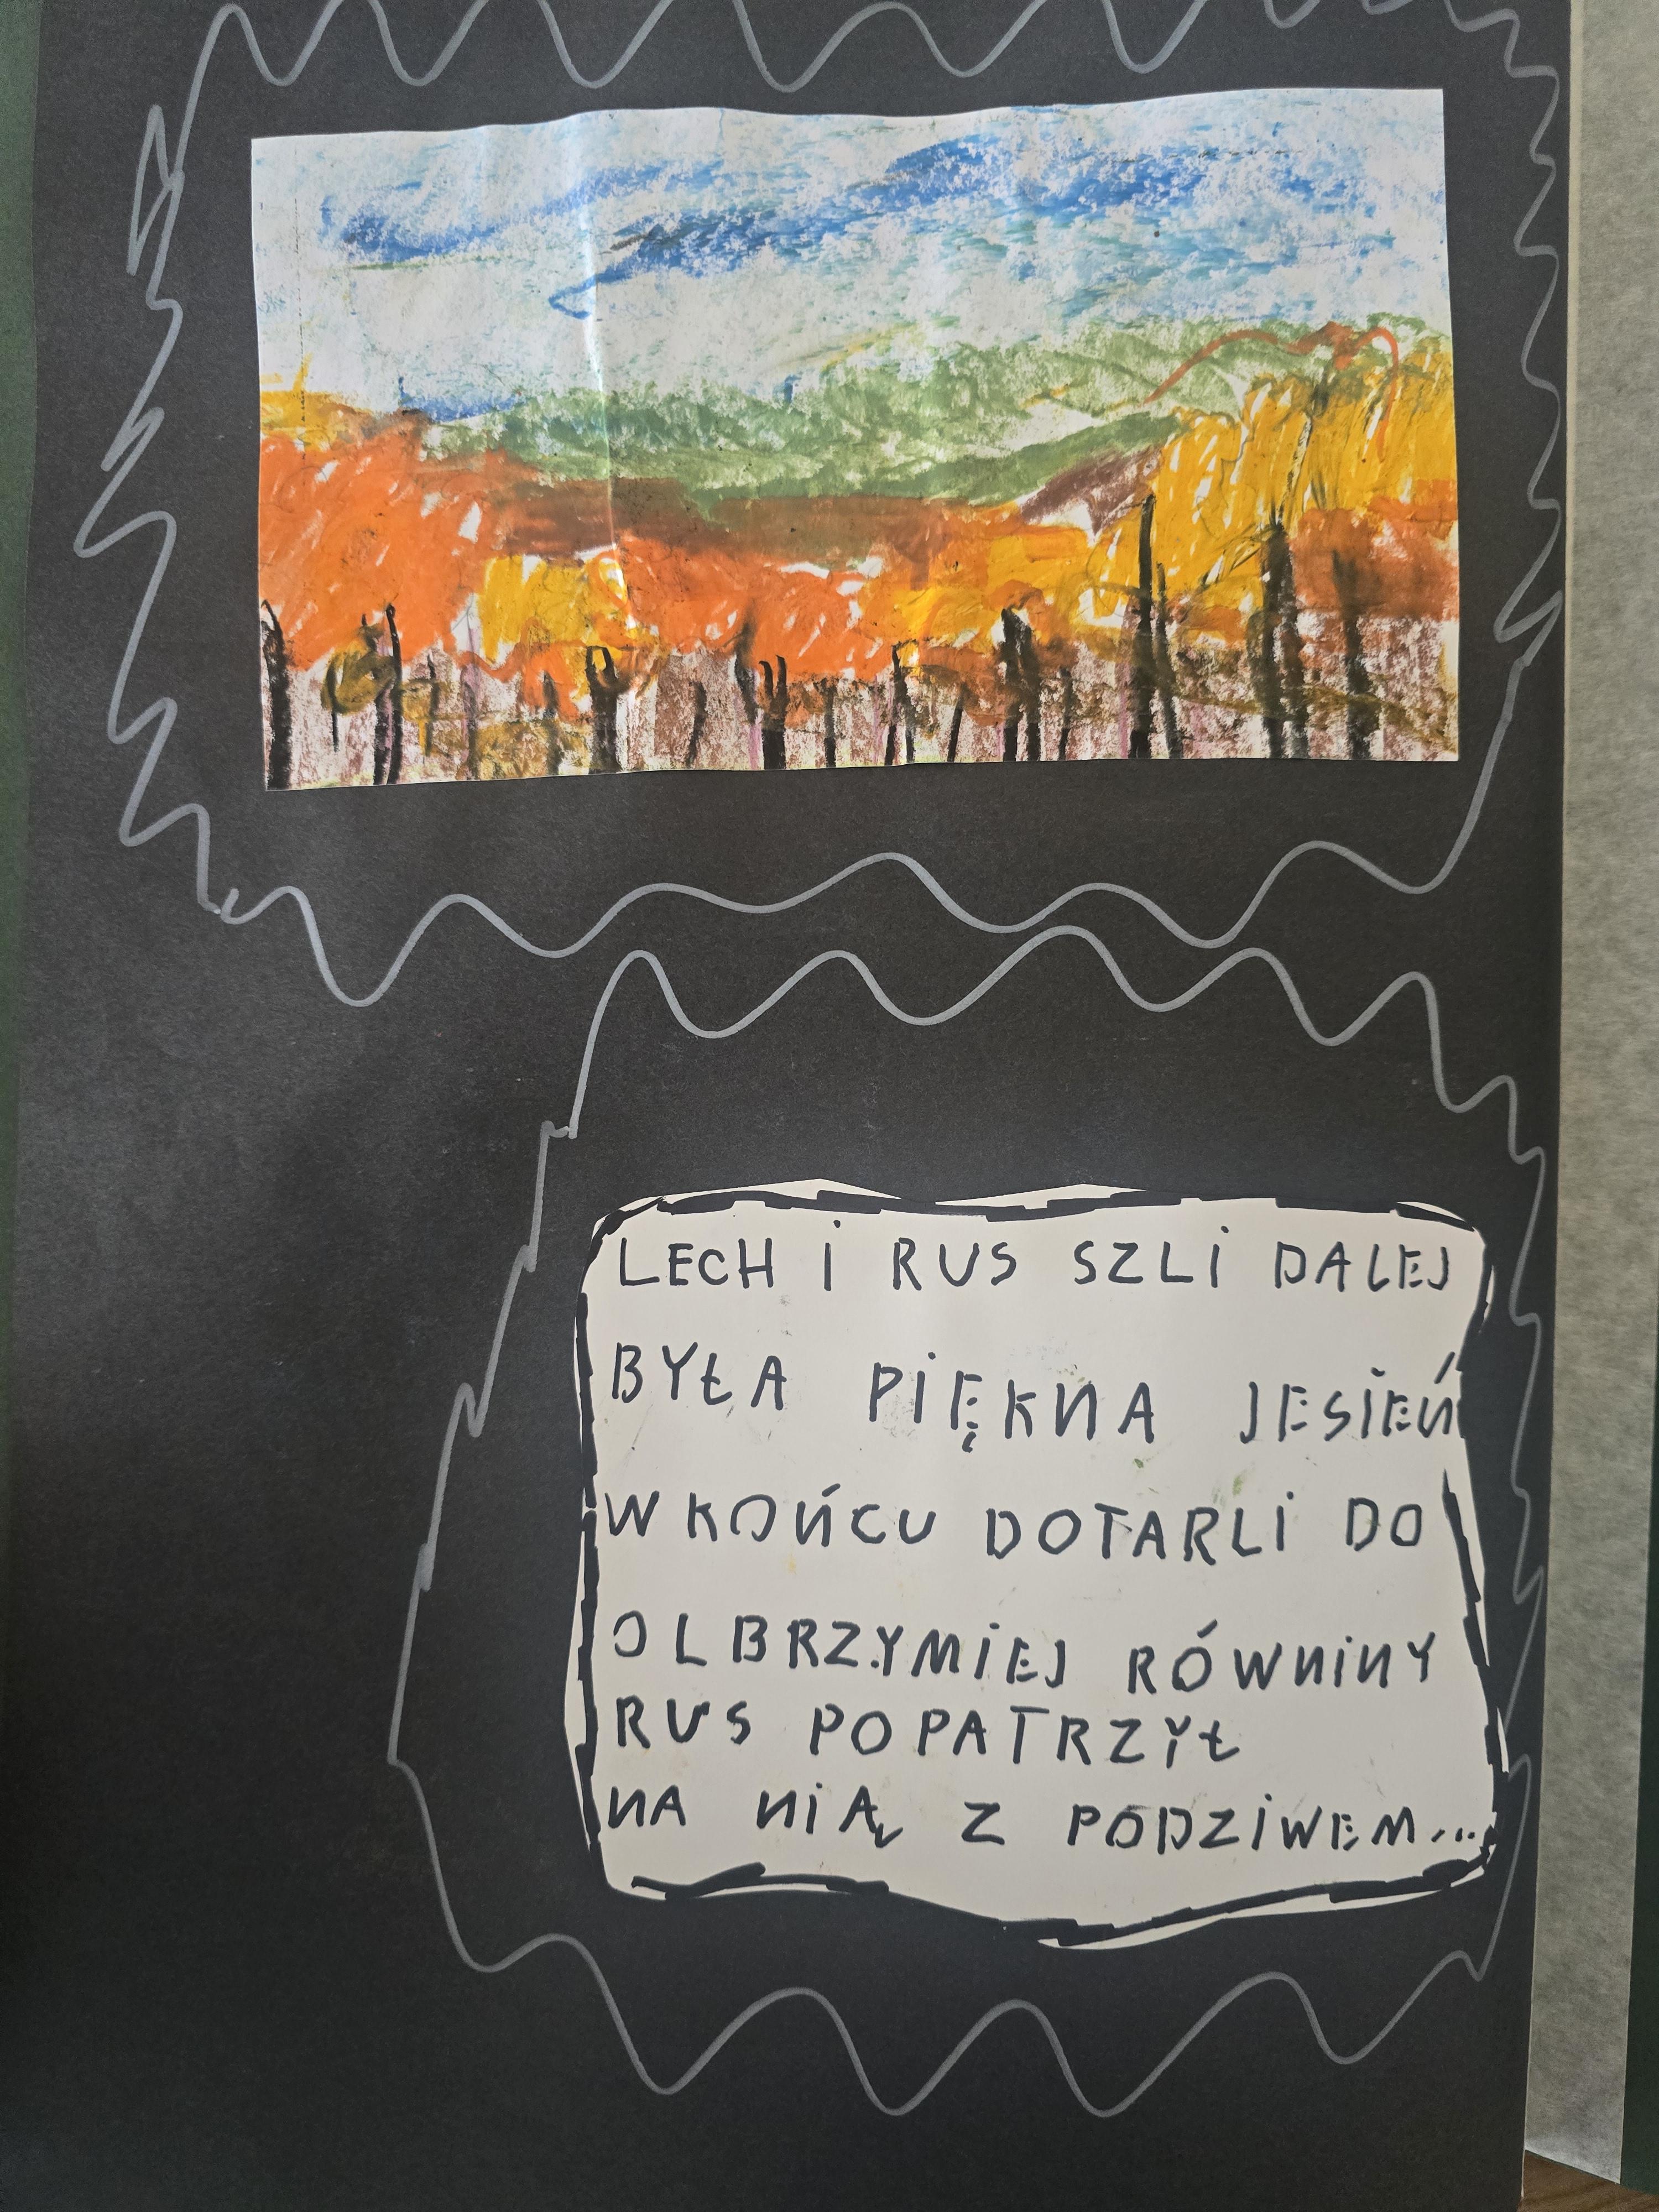 LECH I RUS SZLI DALEJ
BYŁA PIĘKNA JESIEŃ
W KOŃCU DOTARLI DO
OLBRZYMIEJ RÓWNINY
RUS POPATRZYŁ
NA NIĄ Z PODZIWEM...